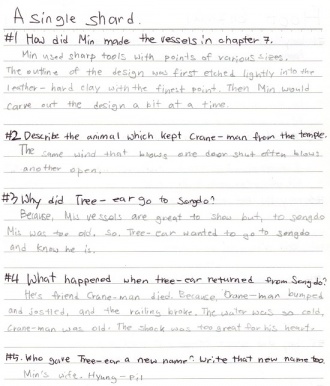 A single shard.
#1 How did Min made the vessels in chapter 7.
Min used sharp tools with points of various sizes.
The outline of the design was first etched lightly into the
leather-hard clay with the finest point. Then Min would
carve out the design a bit at a time.
#2 Describe the animal which kept Crane-man from the temple.
The same wind that blows one door shut often blows
another open.
#3 Why did Tree-ear go to Songdo?
Because, Mis vessels are great to show but, to songdo
Mis was too old. so, Tree-ear wanted to go to songdo
and know he is.
#4 What happened when tree-ear returned from Songdo?
He's friend Crane-man died. Because, Crane-man bumped
and jostled, and the railing broke. The water was so cold,
Crane-man was old. The shock was too great for his heart.
#5. Who gave Tree-ear a new name? Write that new name too.
Min's wife. Hyung-pil